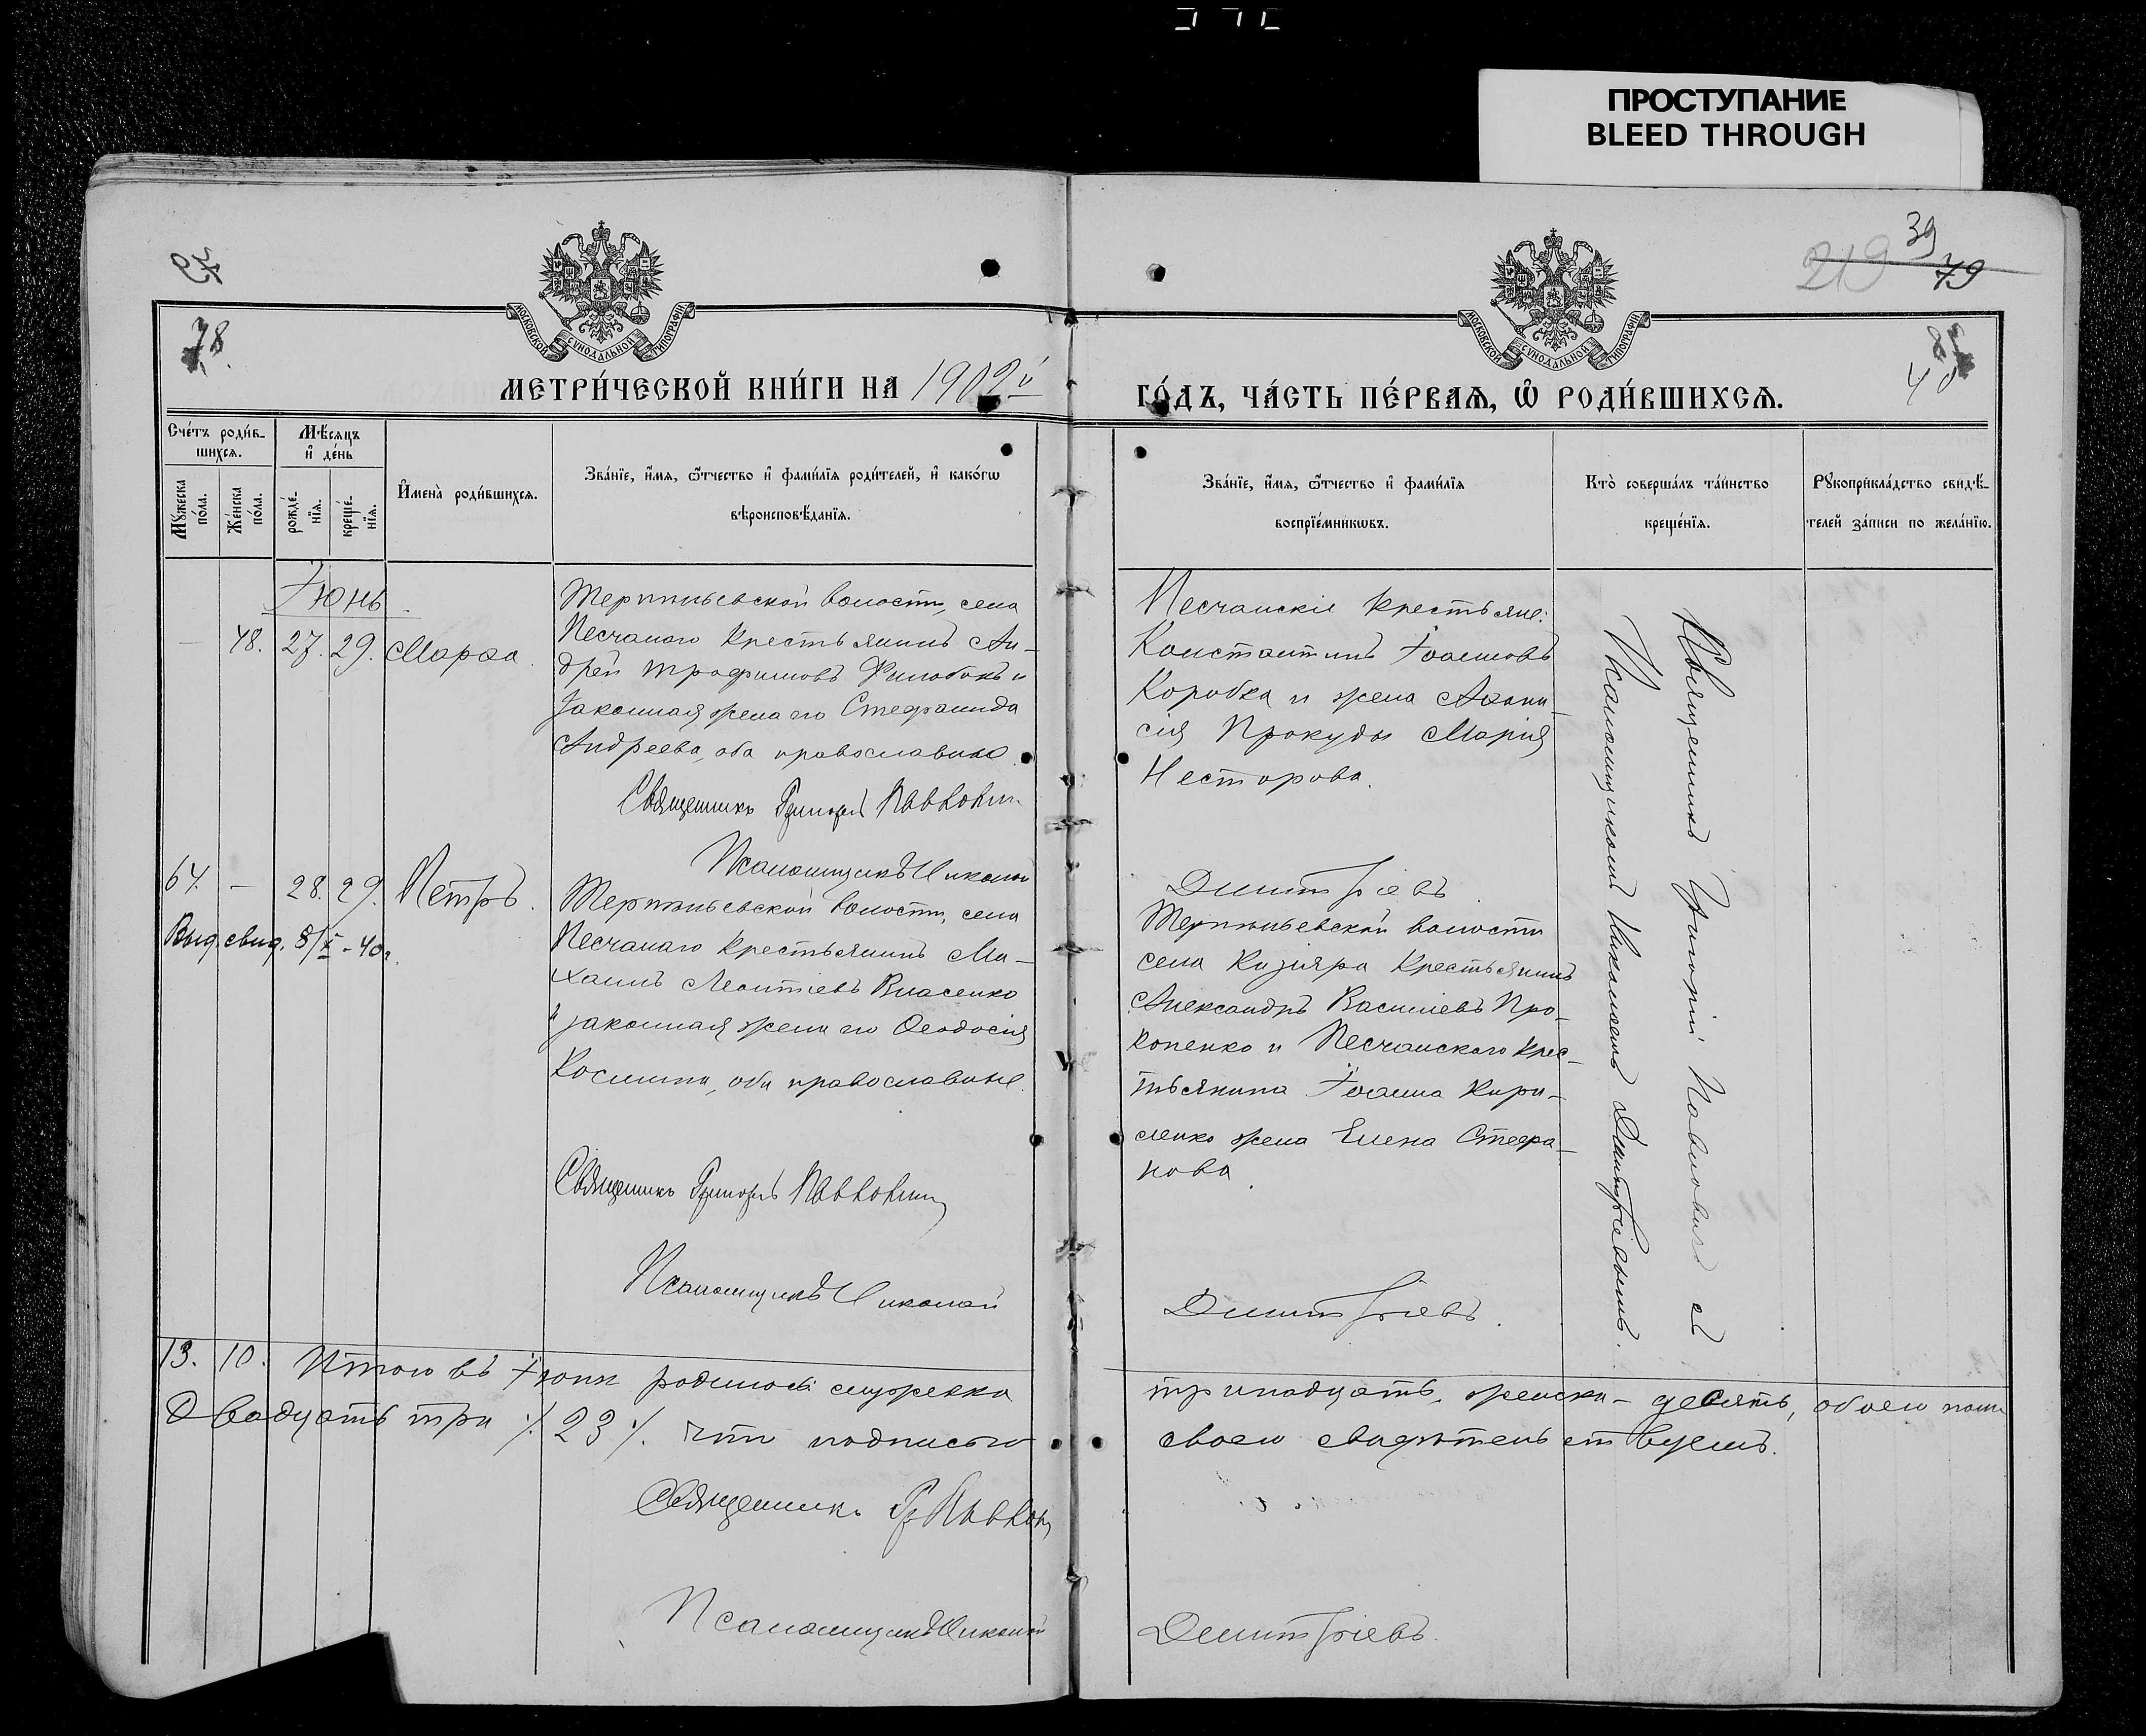 ПРОСТУПАНИЕ
BLEED THROUGH
39
219
79
78.
40
МОСКОВСКОЙ СѴНОДАЛЬНОЙ ТИПОГРАФІИ
МОСКОВСКОЙ СѴНОДАЛЬНОЙ ТИПОГРАФІИ
МЕТРИ́ЧЕСКОЙ КНИ́ГИ НА 1902й
ГО́ДЪ, ЧА́СТЬ ПЕ́РВАѦ, Ѡ РОДИ́ВШИХСѦ.
Сче́тъ роди́в-
шихсѧ.
Мꙋ́жеска
по́ла.
Же́нска
по́ла.
Мѣ́сѧцъ
и҆ де́нь
рожде́-
нїѧ.
креще́-
нїѧ.
И҆мена̀ роди́вшихсѧ.
Зва́нїе, и҆́мѧ, ѻ҆́тчество и҆ фами́лїѧ роди́телей, и҆ како́гѡ
вѣроисповѣ́данїѧ.
Зва́нїе, и҆́мѧ, ѻ҆́тчество и҆ фами́лїѧ
воспрїе́мникѡвъ.
Кто̀ соверша́лъ та́инство
креще́нїѧ.
Рꙋкоприкла́дство свидѣ́-
телей за́писи по жела́нїю.
Іюнь
— 48. 27. 29. Марѳа.
Терпѣньевской волости, села
Песчанаго крестьянинъ Ан-
дрей Трофимовъ Филобокъ и
законная жена его Стефанида
Андреева, оба православные.
Священникъ Григорій Павловичъ
Псаломщикъ Николай
Песчанскіе крестьяне:
Константинъ Іоанновъ
Коробка и жена Аѳана-
сія Прокуды Марія
Несторова.
Димитріевъ
64. — 28. 29. Петръ.
Выд. свид. 8/X - 40г.
Терпѣньевской волости, села
Песчанаго крестьянинъ Ми-
хаилъ Леонтіевъ Власенко
и законная жена его Ѳеодосія
Косьмина, оба православные.
Священникъ Григорій Павловичъ
Псаломщикъ Николай
Терпѣньевской волости
села Кизіяра крестьянинъ
Александръ Василіевъ Про-
копенко и Песчанскаго крес-
тьянина Іоанна Кири-
ленко жена Елена Стефа-
нова.
Димитріевъ.
Священникъ Григорій Павловичъ съ
Псаломщикомъ Николаемъ Димитріевымъ.
13. 10. Итого въ Іюнѣ родилось мужеска
тринадцать, женска - десять, обоего пола
двадцать три ·/. 23 ·/. что подписью
своею свидѣтельствуемъ.
Священникъ Гр Павлович
Псаломщикъ Николай
Димитріевъ.